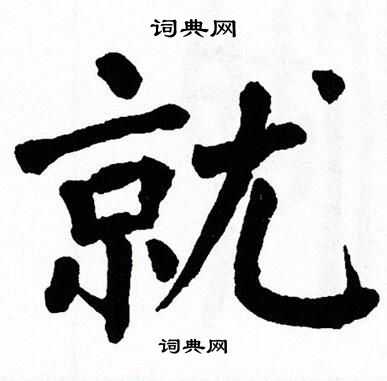 词典网
就
词典网